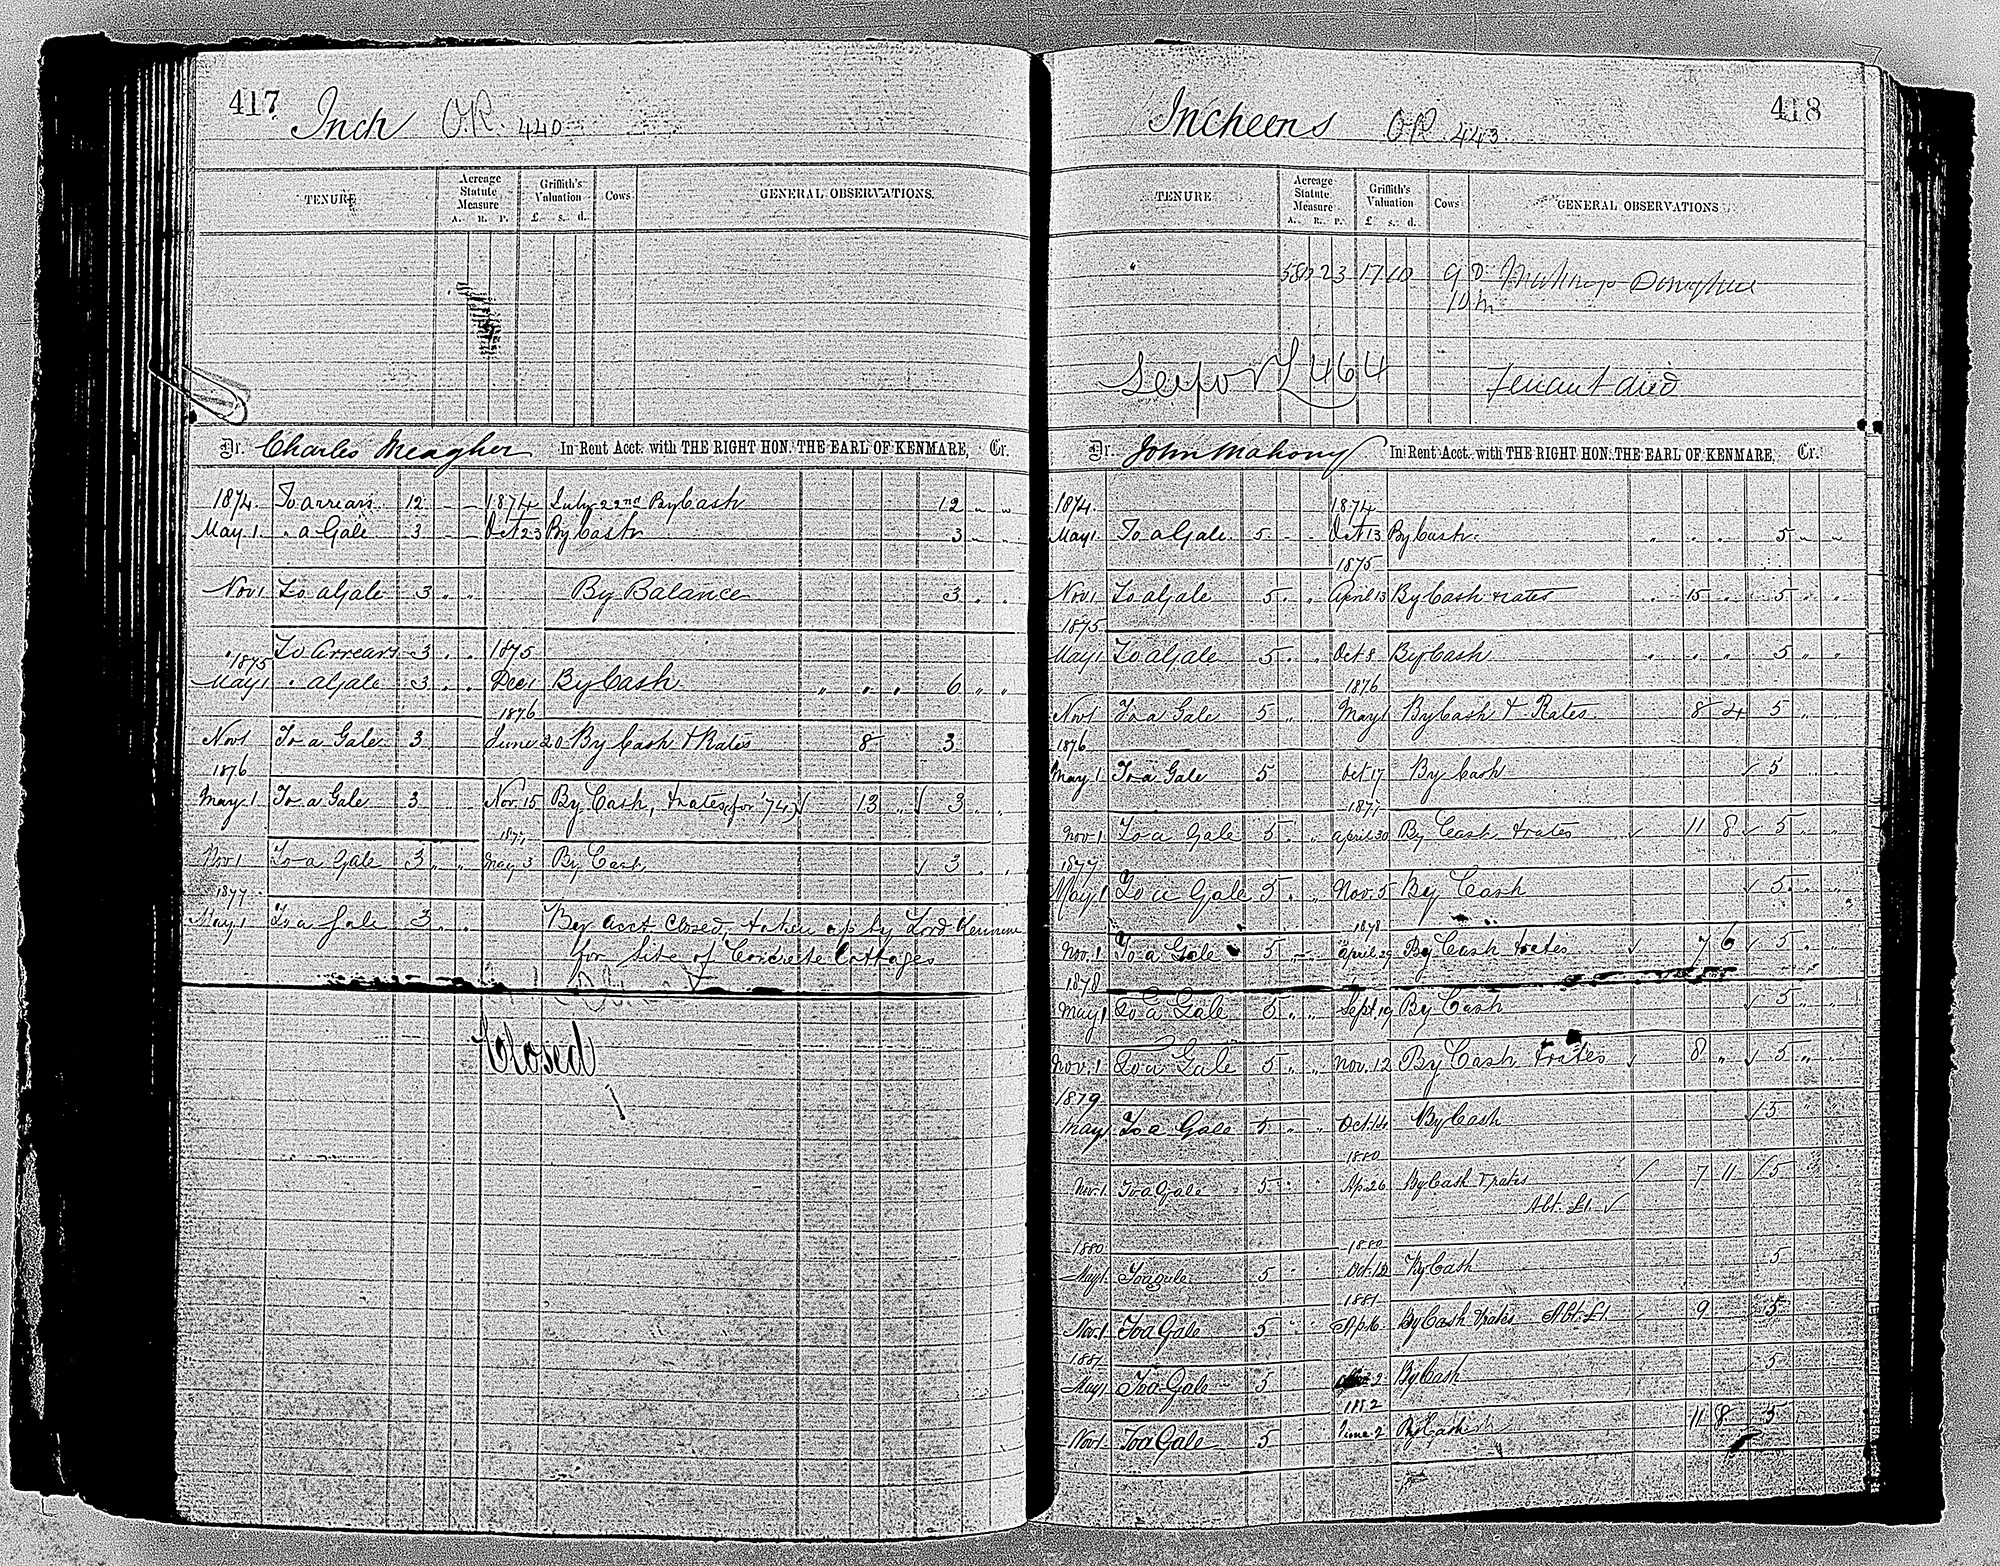 417 Inch O.R. 440
TENURE Acreage Statute Measure A. R. P. Griffith's Valuation £ s. d. Cows GENERAL OBSERVATIONS.
Dr. Charles Meagher In Rent Acct. with THE RIGHT HON. THE EARL OF KENMARE, Cr.
1874. To arrears 12 " " 1874 July 22nd By Cash 12 " "
May 1. " a Gale 3 " " Oct 23 By Cash 3 " "
Nov 1 To a Gale 3 " " By Balance 3 " "
To Arrears 3 " " 1875
1875
May 1 " a Gale 3 " " Dec 1 By Cash " " " 6 " "
1876
Nov 1 To a Gale 3 June 20 By Cash & Rates 8 3
1876
May 1 To a Gale 3 Nov. 15 By Cash, & rates (for '74) 13 " 3 " "
1877
Nov 1 To a Gale 3 " " May 3 By Cash 3 " "
1877
May 1 To a Gale 3 " " By acct closed, taken up by Lord Kenmare
for Site of Concrete Cottages
Closed
418 Incheens O.R. 443
TENURE Acreage Statute Measure A. R. P. Griffith's Valuation £ s. d. Cows GENERAL OBSERVATIONS
23 17 10 9 D. Donoghue
10 m
See for L 464 Tenant died
Dr. John Mahony In Rent Acct. with THE RIGHT HON. THE EARL OF KENMARE, Cr.
1874. 1874
May 1 To a Gale 5 " " Oct 13 By Cash " " " 5 " "
1875
Nov 1 To a Gale 5 " " April 13 By Cash & rates " 15 " 5 " "
1875
May 1 To a Gale 5 " " Oct 8 By Cash " " " 5 " "
1876
Nov 1 To a Gale 5 " " May 1 By Cash & Rates 8 4 5 " "
1876
May 1 To a Gale 5 Oct 17 By Cash 5 " "
1877
Nov. 1 To a Gale 5 " " April 30 By Cash & rates 11 8 5 " "
1877
May 1 To a Gale 5 " " Nov. 5 By Cash 5 " "
1878
Nov. 1 To a Gale 5 " " April 29 By Cash & rates 7 6 5 " "
1878
May 1 To a Gale 5 " " Sept. 19 By Cash 5 " "
Nov. 1 To a Gale 5 " " Nov. 12 By Cash & rates 8 " 5 " "
1879
May 1 To a Gale 5 " " Oct. 14 By Cash 5 "
1880
Nov. 1 To a Gale 5 " " Ap. 26 By Cash & rates 7 11 5 "
Abt. £1.
1880 1880
May 1 To a gale 5 " " Oct. 12 By Cash 5
1881
Nov. 1 To a Gale 5 " " Ap 16 By Cash & rates Abt. £1. 9 5
1881
May 1 To a Gale 5 2 By Cash 5
1882
Nov 1 To a Gale 5 June 2 By Cash 11 8 5